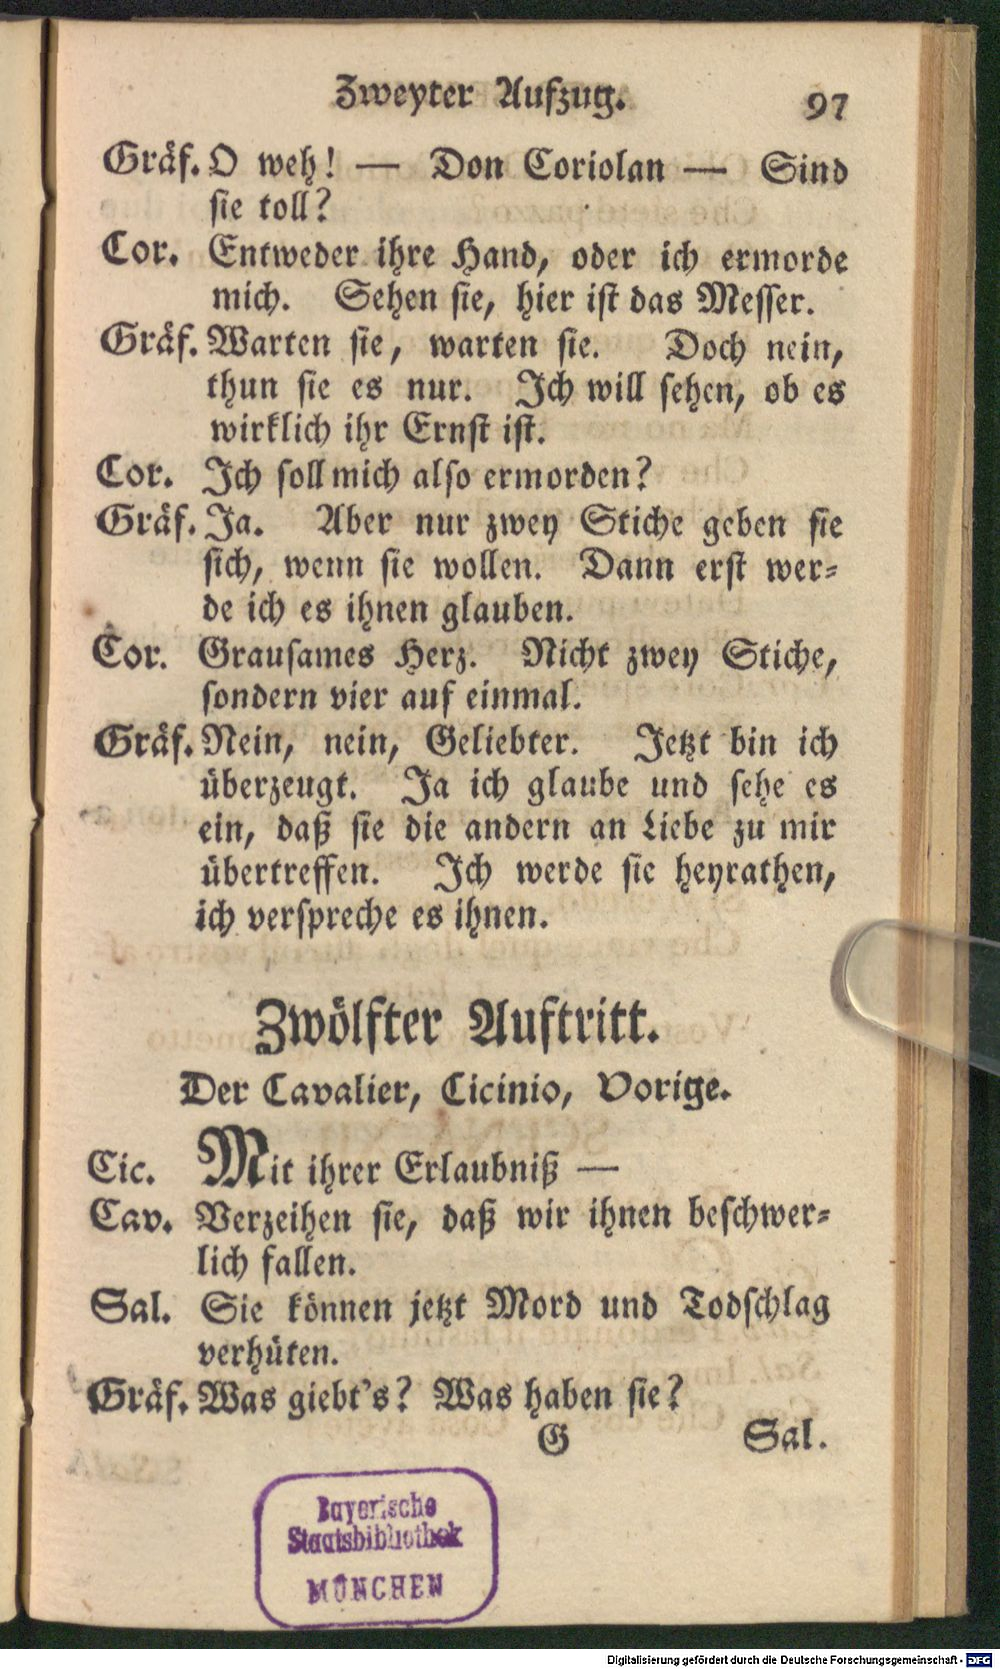 Zweyter Aufzug. 97
Gräf. O weh! — Don Coriolan — Sind
sie toll?
Cor. Entweder ihre Hand, oder ich ermorde
mich. Sehen sie, hier ist das Messer.
Gräf. Warten sie, warten sie. Doch nein,
thun sie es nur. Ich will sehen, ob es
wirklich ihr Ernst ist.
Cor. Ich soll mich also ermorden?
Gräf. Ja. Aber nur zwey Stiche geben sie
sich, wenn sie wollen. Dann erst wer-
de ich es ihnen glauben.
Cor. Grausames Herz. Nicht zwey Stiche,
sondern vier auf einmal.
Gräf. Nein, nein, Geliebter. Jetzt bin ich
überzeugt. Ja ich glaube und sehe es
ein, daß sie die andern an Liebe zu mir
übertreffen. Ich werde sie heyrathen,
ich verspreche es ihnen.
Zwölfter Auftritt.
Der Cavalier, Cicinio, Vorige.
Cic. Mit ihrer Erlaubniß —
Cav. Verzeihen sie, daß wir ihnen beschwer-
lich fallen.
Sal. Sie können jetzt Mord und Todschlag
verhüten.
Gräf. Was giebt's? Was haben sie?
G Sal.
Bayerische
Staatsbibliothek
MÜNCHEN
Digitalisierung gefördert durch die Deutsche Forschungsgemeinschaft - DFG